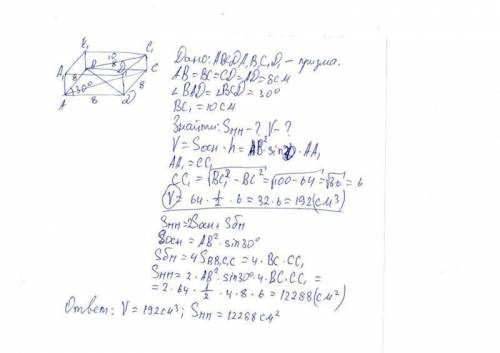 B₁
C₁
A₁
10
B
D₁
C
8
8
30°
A
8
D
Дано: ABCDA₁B₁C₁D₁ – призма.
AB = BC = CD = AD = 8 см
∠BAD = ∠BCD = 30°
BC₁ = 10 см
Знайти: Sпп – ? V – ?
V = Sосн · h = AB² · sin30 · AA₁
AA₁ = CC₁
CC₁ = √BC₁² – BC² = √100 – 64 = √36 = 6
V = 64 · 1/2 · 6 = 32 · 6 = 192 (см³)
Sпп = 2Sосн + Sбп
Sосн = AB² · sin30°
Sбп = 4S BB₁C₁C = 4 · BC · CC₁
Sпп = 2 · AB² · sin30° · 4 · BC · CC₁ =
= 2 · 64 · 1/2 · 4 · 8 · 6 = 12288 (см²)
Ответ: V = 192 см³; Sпп = 12288 см²